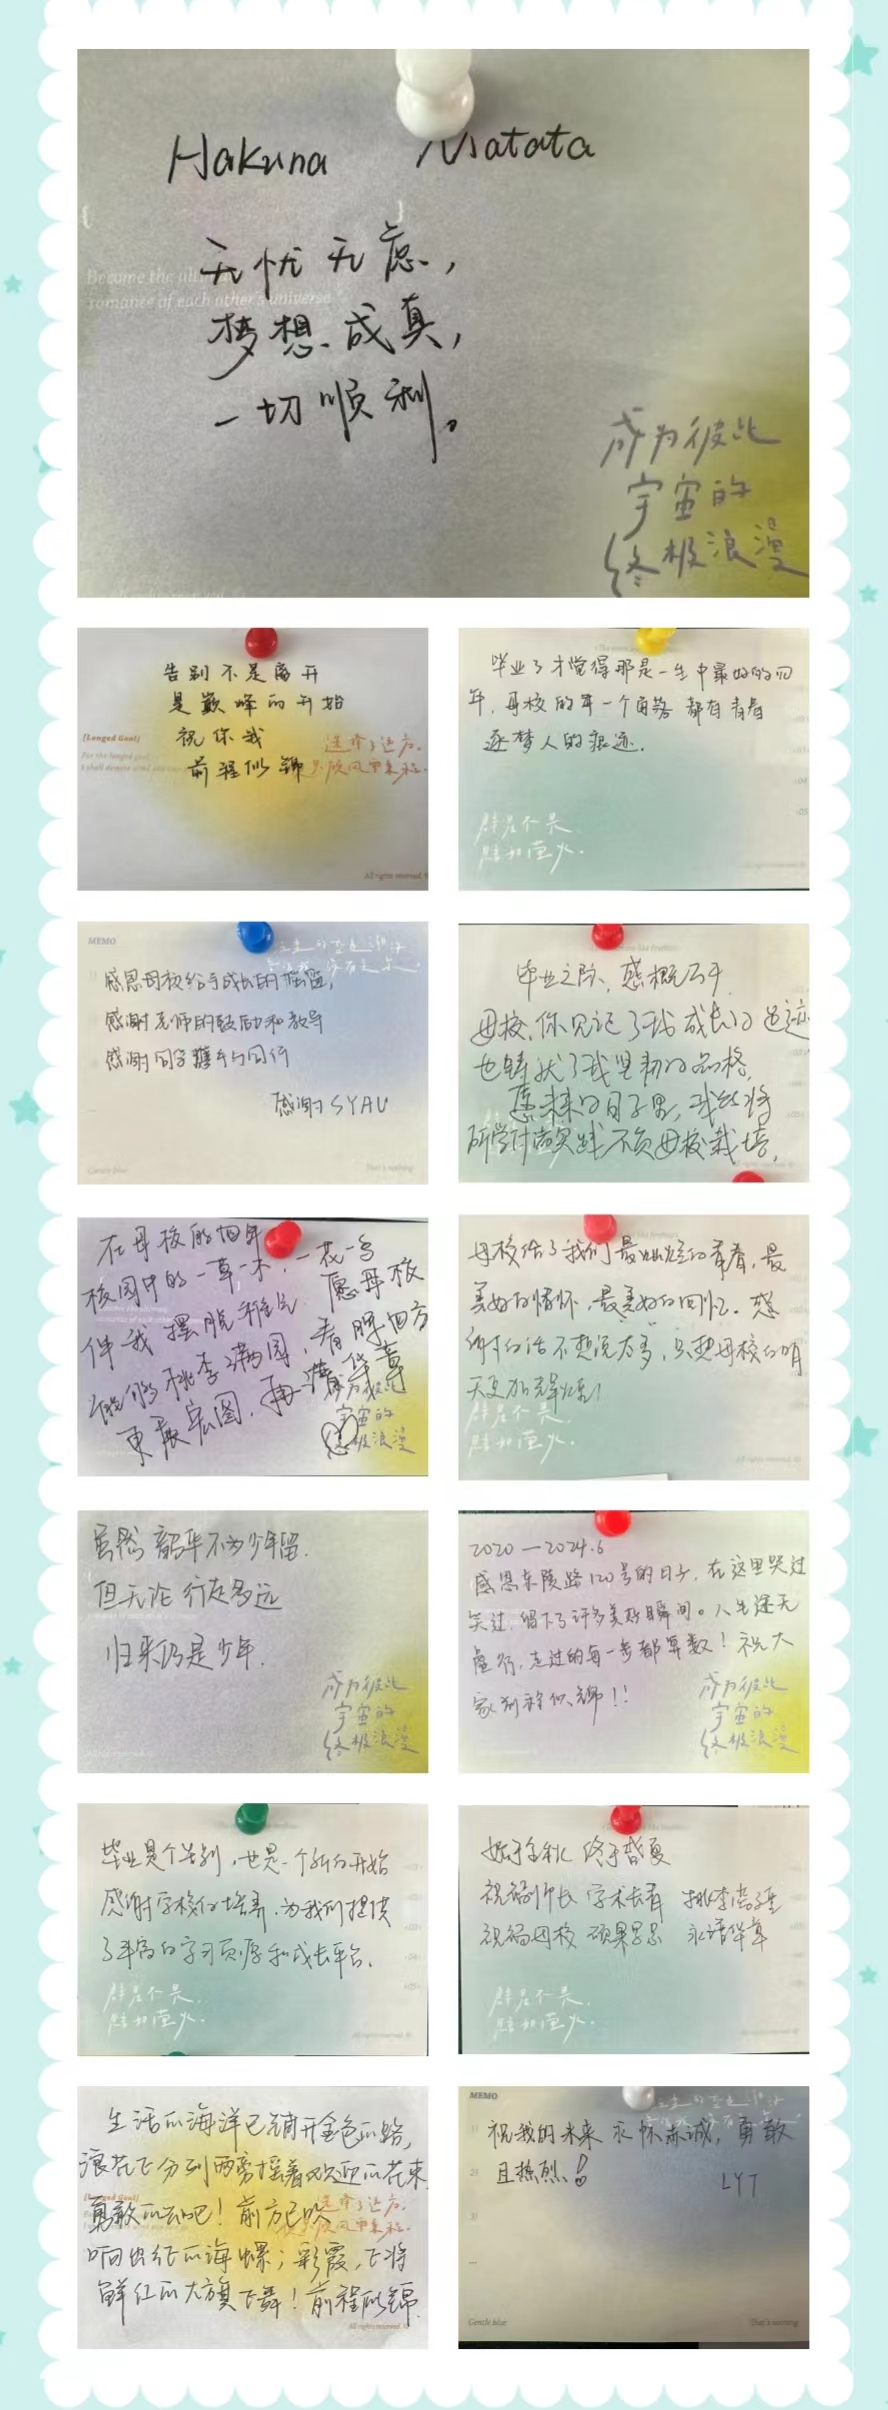 Hakuna Matata
无忧无虑，
梦想成真，
一切顺利。
Become the ultimate
romance of each other's universe
成为彼此
宇宙的
终极浪漫
告别不是离开
是巅峰的开始
祝你我
前程似锦
[Longed Goal]
For the longed goal,
I shall devote
选择了远方，
只顾风雨兼程。
All rights reserved. ©
毕业了才觉得那是一生中最好的四
年，母校的每一个角落都有青春
逐梦人的痕迹．
群星不畏
黯如萤火．
All rights reserved. ©
MEMO
感恩母校给予成长的摇篮，
感谢老师的鼓励和教导
感谢同学携手与同行
感谢SYAU
Gentle blue
That's nothing
毕业之际，感慨万千．
母校，你见记了我成长的足迹
也铸状了我坚韧的品格，
愿未来的日子里，我将
研学付诸实践不负母校栽培，
在母校的四年
校园中的一草一木，一花一鸟
伴我摆脱稚气 愿母校
能够桃李满园，春晖四方
更展宏图，再谱华章
宇宙的
终极浪漫
母校给了我们最灿烂的青春，最
美好的情怀，最美好的回忆．感
谢的话不想说太多，只想母校的明
天更加辉煌！
群星不畏
黯如萤火．
All rights reserved. ©
虽然韶华不为少年留．
但无论行走多远
归来仍是少年．
成为彼此
宇宙的
终极浪漫
2020—2024.6
感恩东陵路120号的日子，在这里哭过
笑过，留下了许多美好瞬间。人生逆无
虚行，走过的每一步都算数！祝大
家前程似锦！！
成为彼此
宇宙的
终极浪漫
毕业是个告别，也是一个新的开始
感谢学校的培养，为我们提供
了丰富的学习资源和成长平台．
群星不畏
黯如萤火．
All rights reserved. ©
始于金秋 终于盛夏
祝福师长 学术长青 桃李满堂
祝福母校 硕果累累 永谱华章
群星不畏
黯如萤火．
All rights reserved. ©
生活的海洋已铺开金色的路，
浪花飞分列两旁摇着欢迎的花束．
勇敢的去吧！前方已吹
响出征的海螺；彩霞，飞将
鲜红的大旗飞舞！前程似锦．
[Longed Goal]
选择了远方，
只顾风雨兼程．
All rights reserved. ©
MEMO
祝我的未来永怀赤诚，勇敢
且热烈！
LYT
Gentle blue
That's nothing